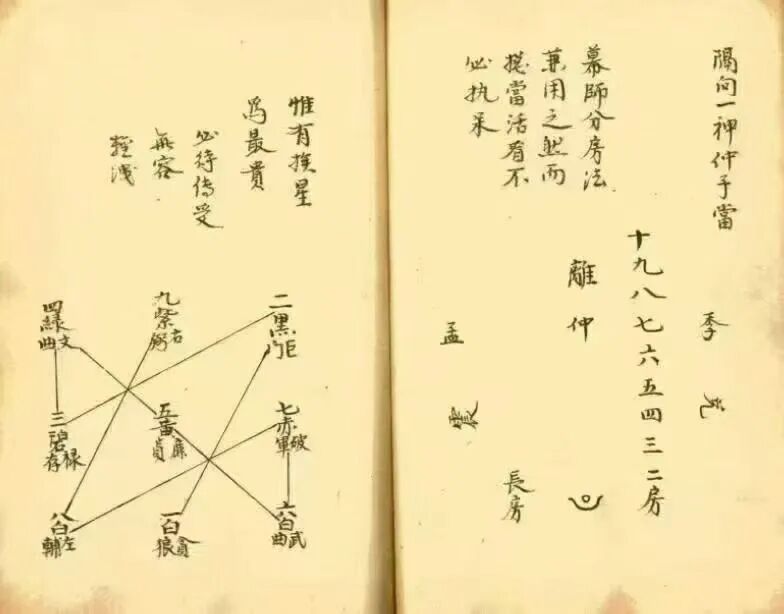 隔向一神仲子當
季 兑
十九八七六五四三二房
幕師分房法
兼用之然而
總當活看不
必执呆
離仲
長房
孟震
惟有挨星
為最貴
必待傳受
無容
輕洩
二黑巨門
九紫右弼
四綠文曲
七赤破軍
五黃廉貞
三碧禄存
六白武曲
一白貪狼
八白左輔